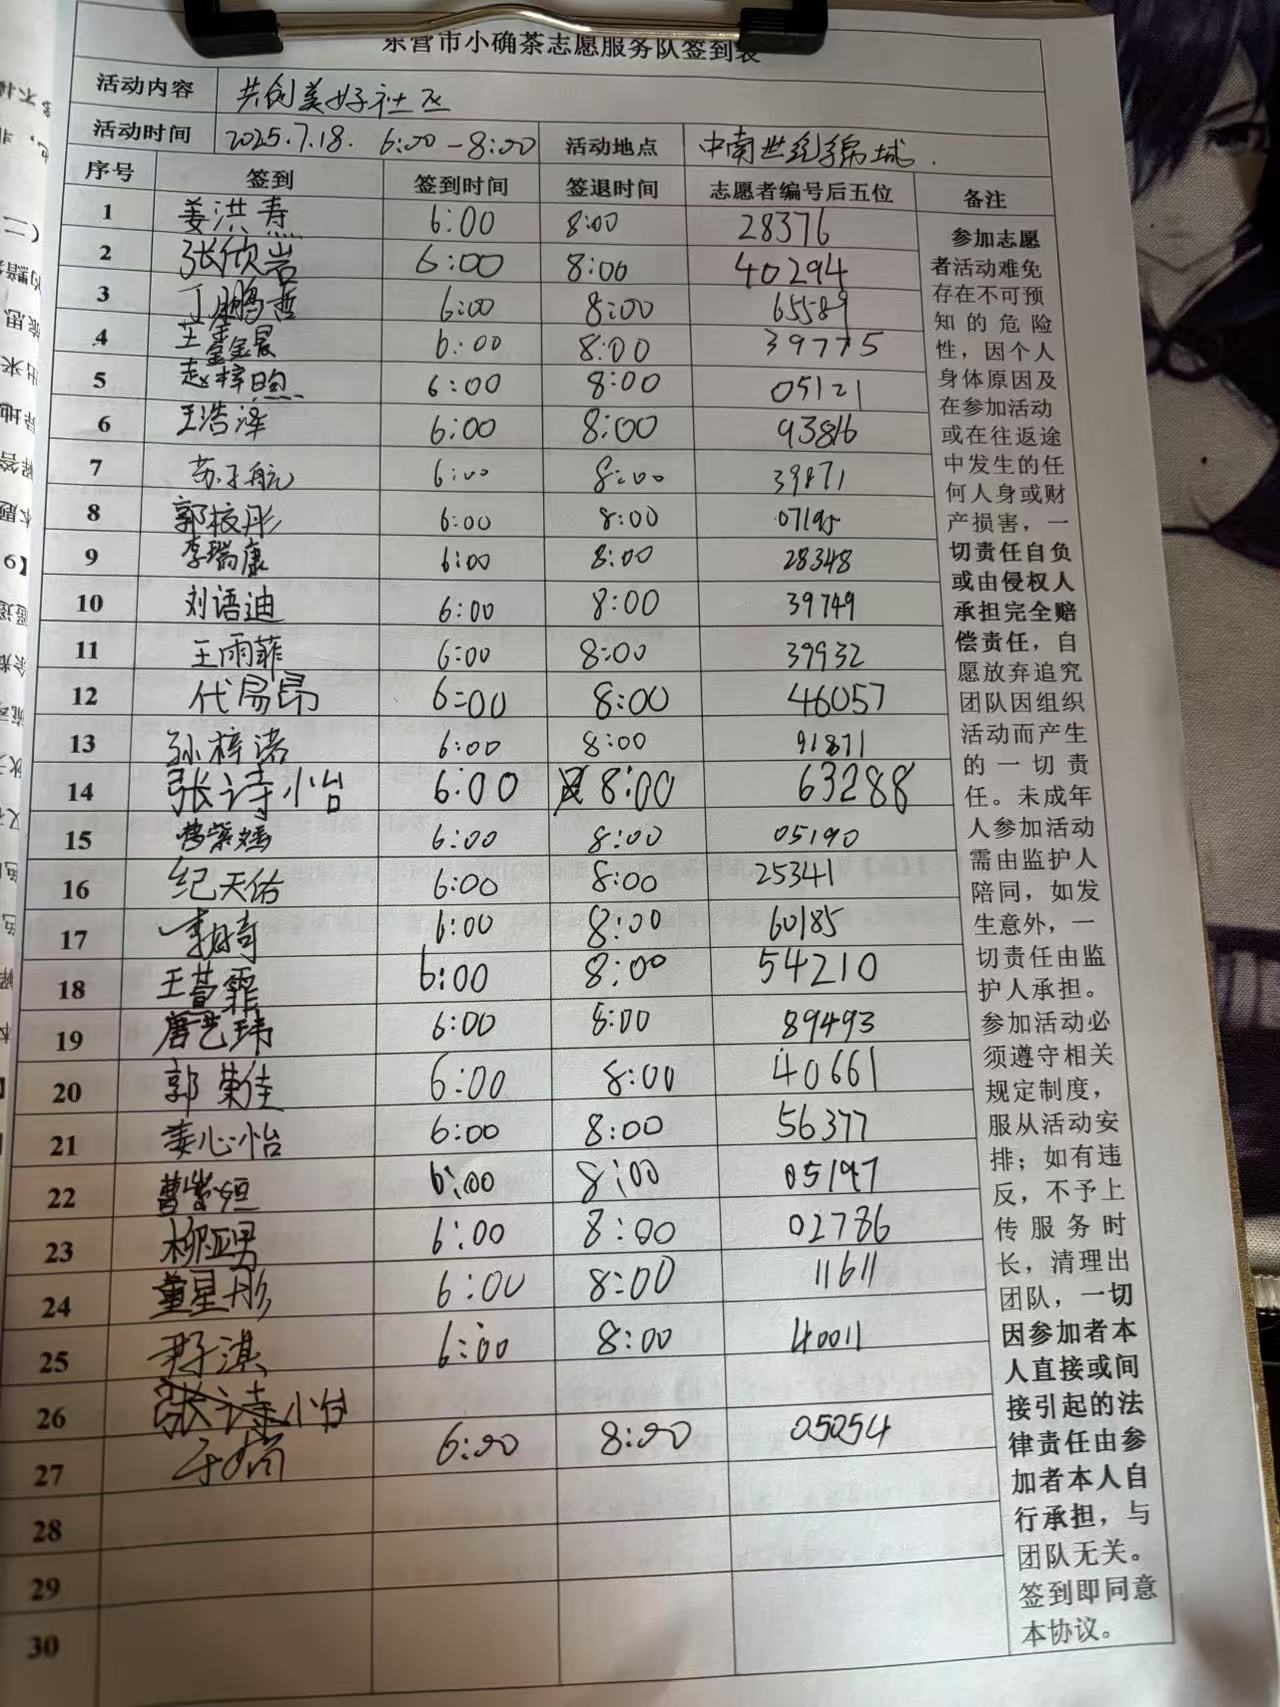 东营市小确茶志愿服务队签到表
活动内容 共创美好社区
活动时间 2025.7.18. 6:00-8:00 活动地点 中南世纪锦城.
序号 签到 签到时间 签退时间 志愿者编号后五位 备注
1 姜洪焘 6:00 8:00 28376
2 张欣岩 6:00 8:00 40294
3 丁鹏哲 6:00 8:00 65589
4 王鑫晨 6:00 8:00 39775
5 赵梓煦 6:00 8:00 05121
6 王浩泽 6:00 8:00 93816
7 苏子航 6:00 8:00 39871
8 郭枝彤 6:00 8:00 07195
9 李瑞康 6:00 8:00 28348
10 刘语迪 6:00 8:00 39749
11 王雨菲 6:00 8:00 39932
12 代易昂 6:00 8:00 46057
13 孙梓诺 6:00 8:00 91871
14 张诗小怡 6:00 8:00 63288
15 曹紫 6:00 8:00 05190
16 纪天佑 6:00 8:00 25341
17 6:00 8:00 60185
18 王萱霏 6:00 8:00 54210
19 唐艺玮 6:00 8:00 89493
20 郭荣佳 6:00 8:00 40661
21 姜心怡 6:00 8:00 56377
22 曹紫烜 6:00 8:00 05197
23 柳亚男 6:00 8:00 02786
24 董星彤 6:00 8:00 11611
25 尹子淇 6:00 8:00 40011
26
27 于 6:00 8:00 05054
28
29
30
参加志愿
者活动难免
存在不可预
知的危险
性，因个人
身体原因及
在参加活动
或在往返途
中发生的任
何人身或财
产损害，一
切责任自负
或由侵权人
承担完全赔
偿责任，自
愿放弃追究
团队因组织
活动而产生
的一切责
任。未成年
人参加活动
需由监护人
陪同，如发
生意外，一
切责任由监
护人承担。
参加活动必
须遵守相关
规定制度，
服从活动安
排；如有违
反，不予上
传服务时
长，清理出
团队，一切
因参加者本
人直接或间
接引起的法
律责任由参
加者本人自
行承担，与
团队无关。
签到即同意
本协议。